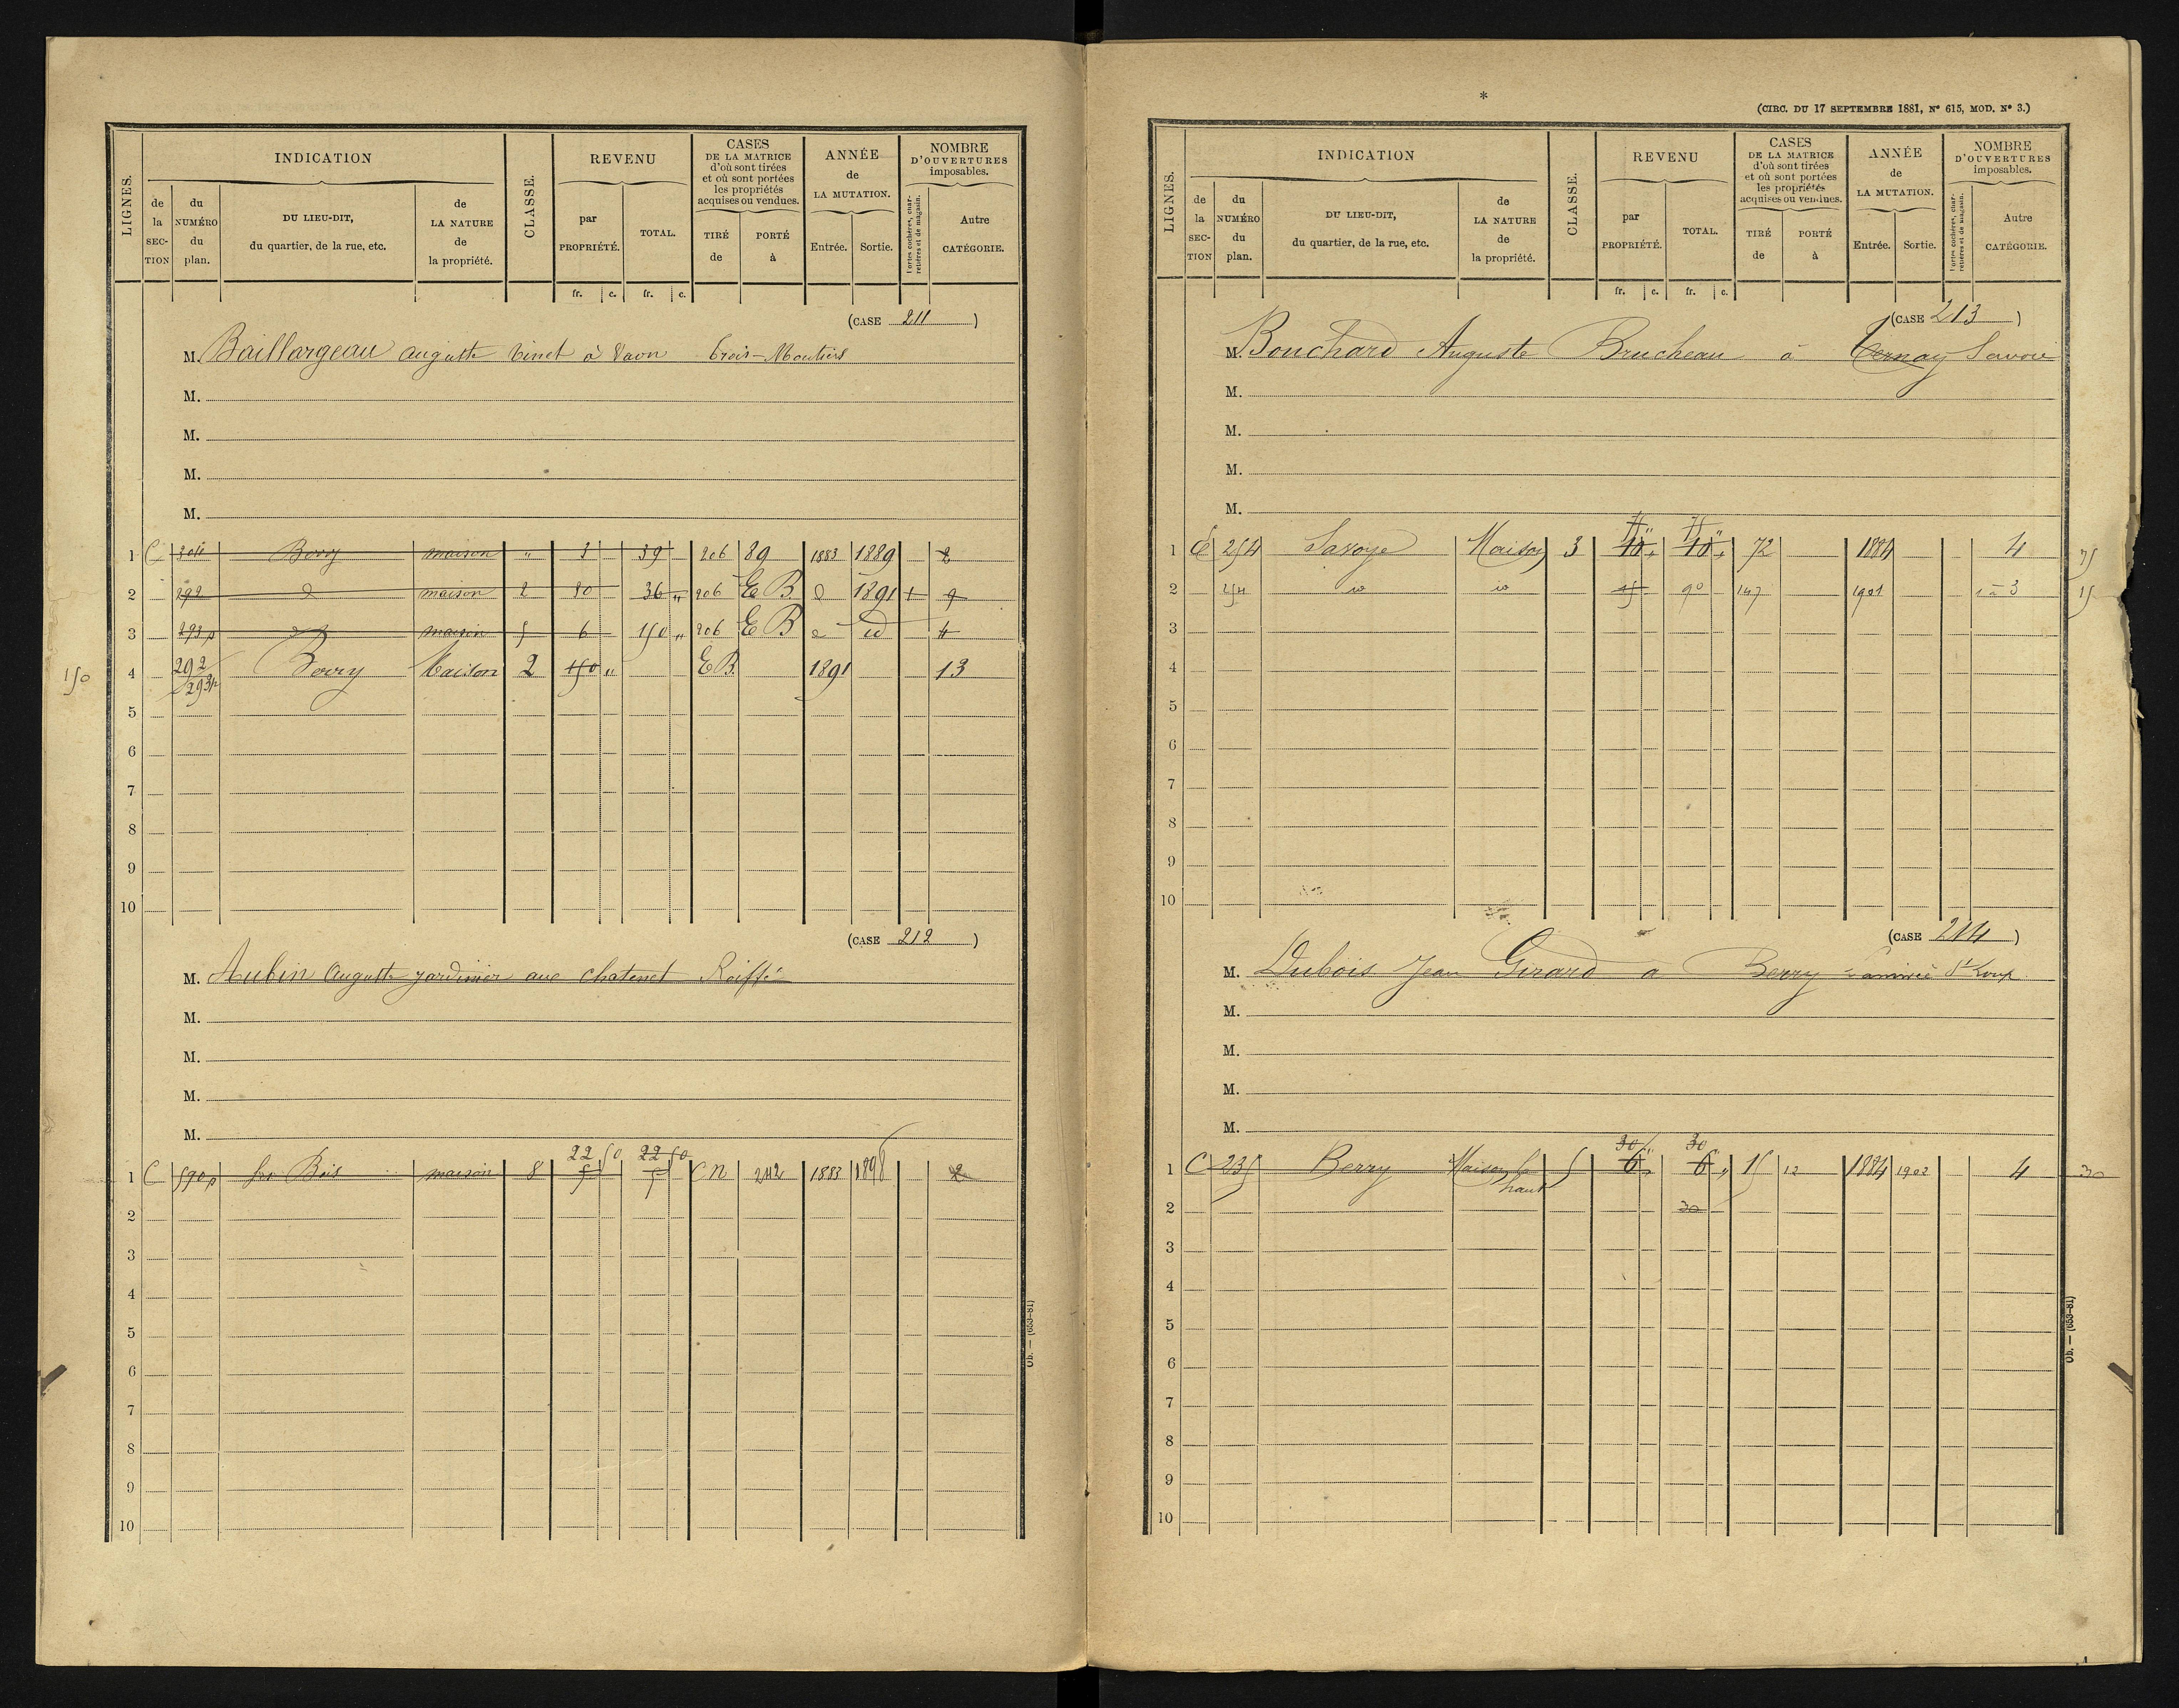 LIGNES.
INDICATION
de la SECTION
du NUMÉRO du plan.
DU LIEU-DIT, du quartier, de la rue, etc.
de LA NATURE de la propriété.
CLASSE.
REVENU
par PROPRIÉTÉ.
TOTAL.
CASES DE LA MATRICE d'où sont tirées et où sont portées les propriétés acquises ou vendues.
TIRÉ de
PORTÉ à
ANNÉE de LA MUTATION.
Entrée.
Sortie.
NOMBRE D'OUVERTURES imposables.
Portes cochères, charretières et de magasin.
Autre CATÉGORIE.
fr. c. fr. c.
(CASE 211)
M. Baillargeau auguste Vinet à Vaon Trois-Moutiers
M.
M.
M.
M.
1 C 304 Berry maison " 3 39 206 89 1883 1889 2
2 292 d maison 2 80 36 " 206 E B. d 1891 1 9
3 293p d maison 5 6 150 " 206 E B d id 4
150 4 292 293p Berry Maison 2 150 " E B. 1891 13
5
6
7
8
9
10
(CASE 212)
M. Aubin Auguste jardinier aux chatenet Roiffé
M.
M.
M.
M.
22 50 22 50
1 C 590p Bois maison 8 5 5 C N 242 1883 1898 2
2
3
4
5
6
7
8
9
10
Ob. — (653-81)
*
(CIRC. DU 17 SEPTEMBRE 1881, N° 615, MOD. N° 3.)
LIGNES.
INDICATION
de la SECTION
du NUMÉRO du plan.
DU LIEU-DIT, du quartier, de la rue, etc.
de LA NATURE de la propriété.
CLASSE.
REVENU
par PROPRIÉTÉ.
TOTAL.
CASES DE LA MATRICE d'où sont tirées et où sont portées les propriétés acquises ou vendues.
TIRÉ de
PORTÉ à
ANNÉE de LA MUTATION.
Entrée.
Sortie.
NOMBRE D'OUVERTURES imposables.
Portes cochères, charretières et de magasin.
Autre CATÉGORIE.
fr. c. fr. c.
(CASE 213)
M. Bouchard Auguste Brucheau à Ternay Savoie
M.
M.
M.
M.
75 " 75 "
1 C 254 Savoye Maison 3 10 " 10 " 72 1884 4 75
2 254 id id 15 90 147 1901 1 à 3 15
3
4
5
6
7
8
9
10
(CASE 214)
M. Dubois Jean Girard a Berry St Loup
M.
M.
M.
M.
30 " 30 "
1 C 235 Berry Maison le haut 5 6 " 6 " 15 12 1884 1902 4 30
2 30
3
4
5
6
7
8
9
10
Ob. — (653-81)